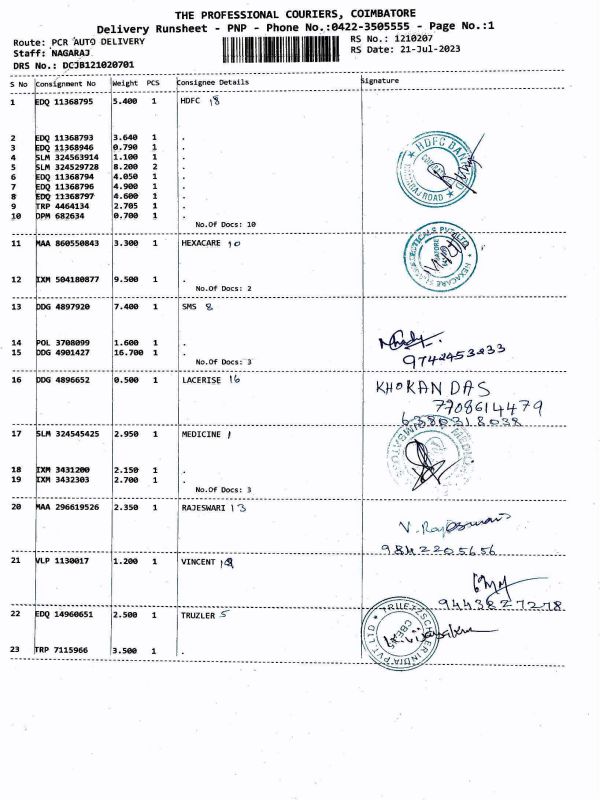 THE PROFESSIONAL COURIERS, COIMBATORE
Delivery Runsheet - PNP - Phone No.:0422-3505555 - Page No.:1
Route: PCR AUTO DELIVERY RS No.: 1210207
Staff: NAGARAJ RS Date: 21-Jul-2023
DRS No.: DCJB121020701
S No Consignment No Weight PCS Consignee Details Signature
1 EDQ 11368795 5.400 1 HDFC 18
2 EDQ 11368793 3.640 1 .
3 EDQ 11368946 0.790 1 .
4 SLM 324563914 1.100 1 .
5 SLM 324529728 8.200 2 .
6 EDQ 11368794 4.050 1 .
7 EDQ 11368796 4.900 1 .
8 EDQ 11368797 4.600 1 .
9 TRP 4464134 2.705 1 .
10 DPM 682634 0.700 1 .
No.Of Docs: 10
HDFC BANK
ROAD
11 MAA 860550843 3.300 1 HEXACARE 10
12 IXM 504180877 9.500 1 .
No.Of Docs: 2
HEXACARE
13 DDG 4897920 7.400 1 SMS 8
14 POL 3708099 1.600 1 .
15 DDG 4901427 16.700 1 .
No.Of Docs: 3
9742453233
16 DDG 4896652 0.500 1 LACERISE 16
KHOKAN DAS
7708614479
6380318038
17 SLM 324545425 2.950 1 MEDICINE 1
18 IXM 3431200 2.150 1 .
19 IXM 3432303 2.700 1 .
No.Of Docs: 3
20 MAA 296619526 2.350 1 RAJESWARI 13
9842205656
21 VLP 1130017 1.200 1 VINCENT
9443827278
22 EDQ 14960651 2.500 1 TRUZLER 5
23 TRP 7115966 3.500 1 .
INDIA PVT LTD